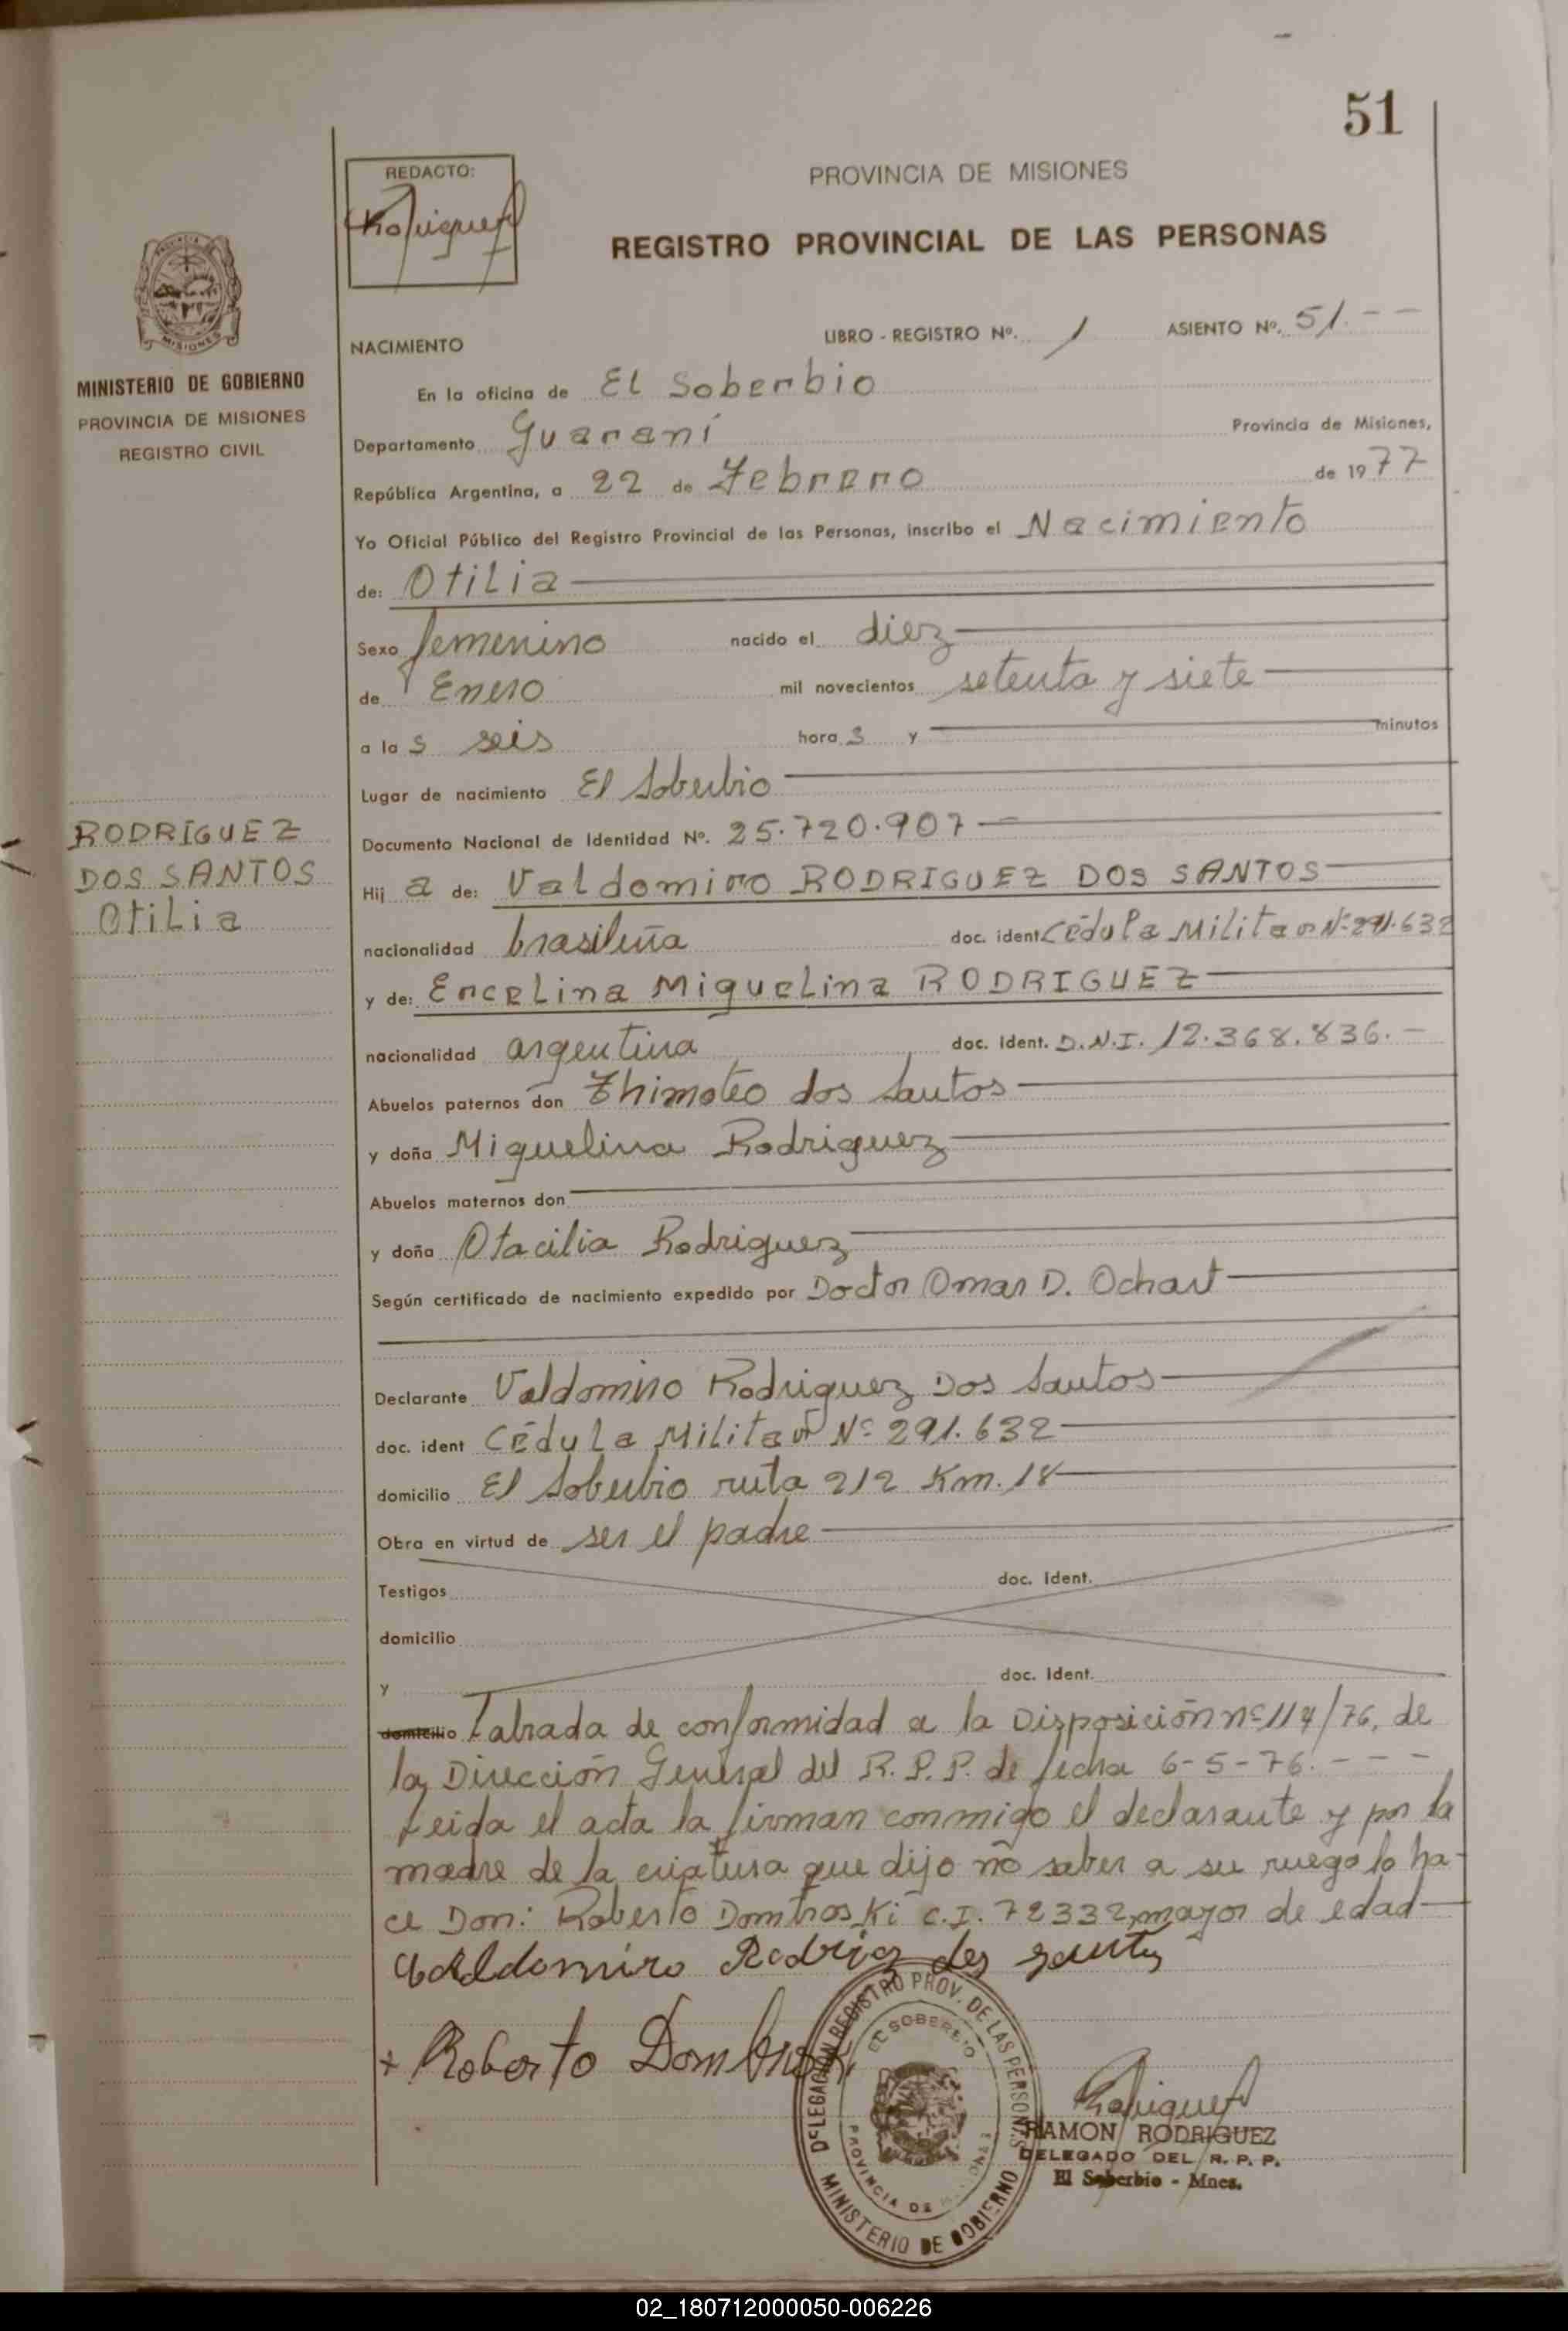 51
REDACTO:
PROVINCIA DE MISIONES
REGISTRO PROVINCIAL DE LAS PERSONAS
MISIONES
MINISTERIO DE GOBIERNO
PROVINCIA DE MISIONES
REGISTRO CIVIL
NACIMIENTO LIBRO - REGISTRO Nº. 1 ASIENTO Nº. 51. - -
En la oficina de El Soberbio
Departamento Guaraní Provincia de Misiones,
República Argentina, a 22 de Febrero de 1977
Yo Oficial Público del Registro Provincial de las Personas, inscribo el Nacimiento
de: Otilia
Sexo femenino nacido el diez
de Enero mil novecientos setenta y siete
a las seis horas y minutos
Lugar de nacimiento El Soberbio
Documento Nacional de Identidad Nº. 25.720.907
RODRIGUEZ
DOS SANTOS
Otilia
Hija de: Valdomiro RODRIGUEZ DOS SANTOS
nacionalidad brasileña doc. ident. Cédula Militar Nº 291.632
y de: Encelina Miguelina RODRIGUEZ
nacionalidad argentina doc. ident. D.N.I. 12.368.836. -
Abuelos paternos don Thimoteo dos Santos
y doña Miguelina Rodriguez
Abuelos maternos don
y doña Otacilia Rodriguez
Según certificado de nacimiento expedido por Doctor Omar D. Ochart
Declarante Valdomiro Rodriguez Dos Santos
doc. ident Cédula Militar Nº 291.632
domicilio El Soberbio ruta 212 Km. 18
Obra en virtud de ser el padre
Testigos doc. ident.
domicilio
y doc. ident.
domicilio Labrada de conformidad a la Disposición nº 114/76, de
la Dirección General del R.P.P. de fecha 6-5-76. - - -
Leida el acta la firman conmigo el declarante y por la
madre de la criatura que dijo no saber a su ruego lo ha-
ce Don: Roberto Dombroski C.I. 72332, mayor de edad
Valldomiro Rodrigz dos santos
+ Roberto Dombroski
DELEGACION REGISTRO PROV. DE LAS PERSONAS
EL SOBERBIO
PROVINCIA DE MISIONES
MINISTERIO DE GOBIERNO
Rodriguez
RAMON RODRIGUEZ
DELEGADO DEL R. P. P.
El Soberbio - Mnes.
02_180712000050-006226